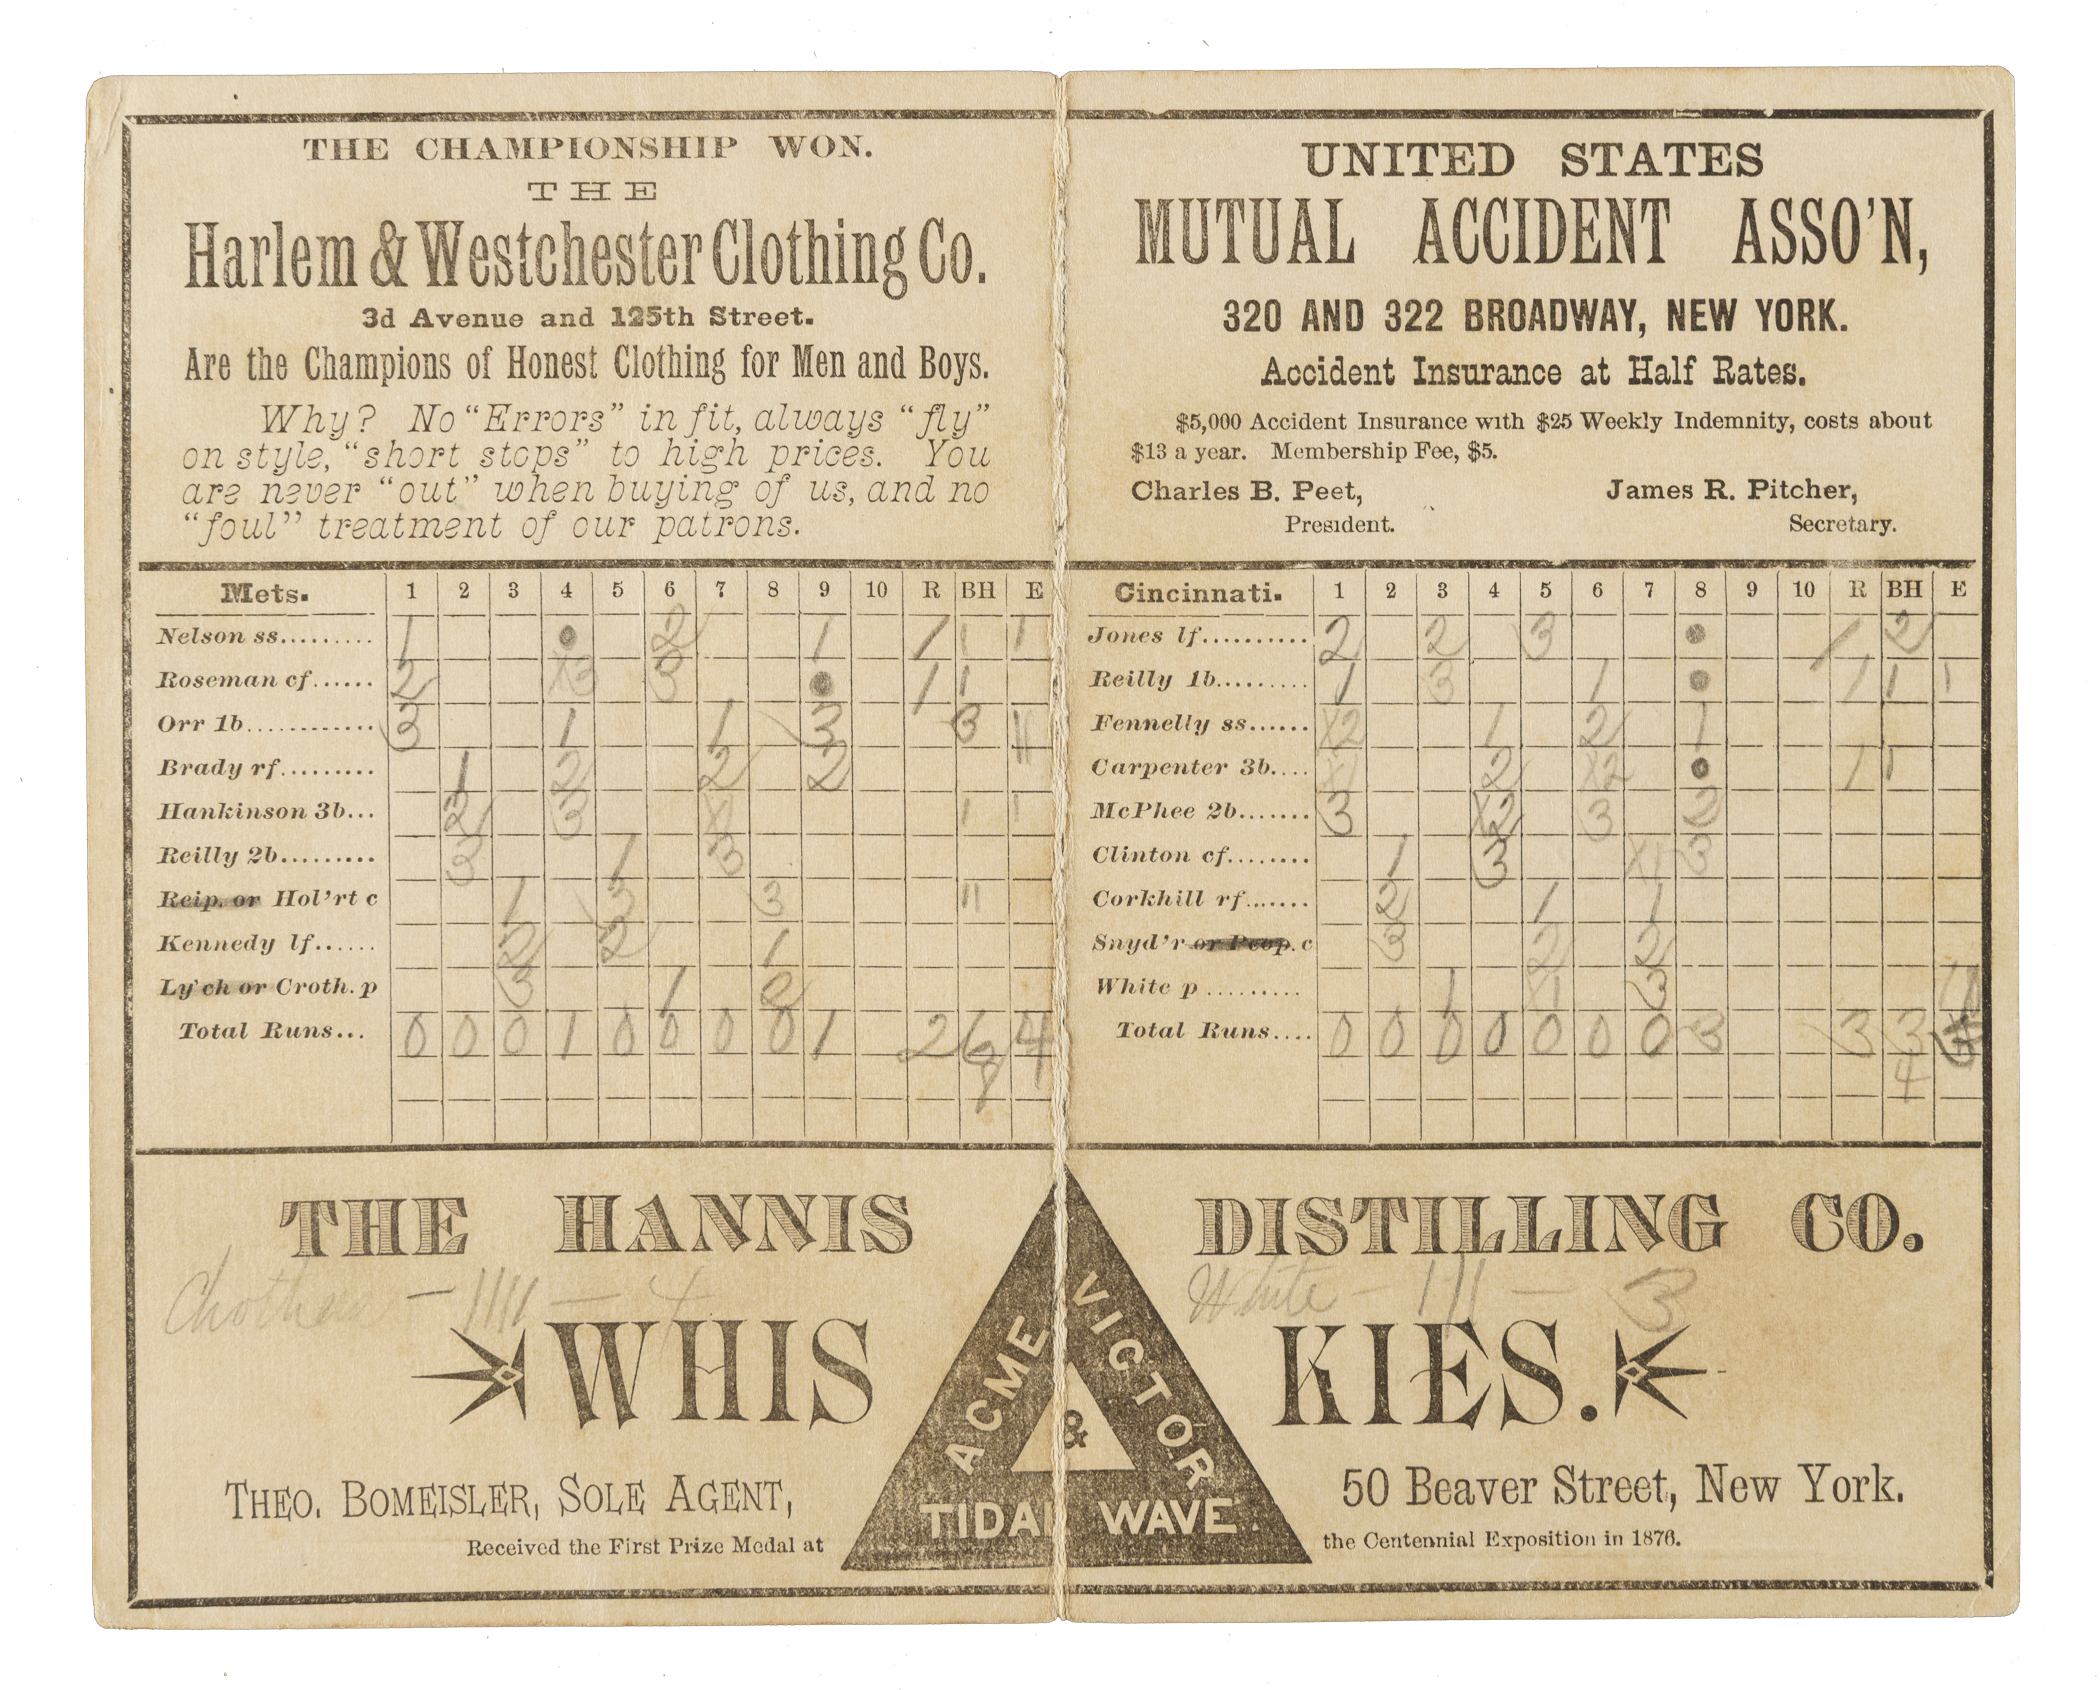 THE CHAMPIONSHIP WON.
THE
Harlem & Westchester Clothing Co.
3d Avenue and 125th Street.
Are the Champions of Honest Clothing for Men and Boys.
Why? No "Errors" in fit, always "fly"
on style, "short stops" to high prices. You
are never "out" when buying of us, and no
"foul" treatment of our patrons.
UNITED STATES
MUTUAL ACCIDENT ASSO'N,
320 AND 322 BROADWAY, NEW YORK.
Accident Insurance at Half Rates.
$5,000 Accident Insurance with $25 Weekly Indemnity, costs about
$13 a year. Membership Fee, $5.
Charles B. Peet, James R. Pitcher,
President. Secretary.
Mets. 1 2 3 4 5 6 7 8 9 10 R BH E
Nelson ss......... 1 2 1 1 1 1
Roseman cf...... 2 X3 3 1 1
Orr 1b............ 3 1 1 3 3 11
Brady rf......... 1 2 2 2
Hankinson 3b... 2 3 X1 1 1
Reilly 2b......... 3 1 3
Reip. or Hol'rt c 1 3 3 11
Kennedy lf...... 2 2 1
Ly'ch or Croth. p 3 1 2
Total Runs... 0 0 0 1 0 0 0 0 1 2 6 4
8
Cincinnati. 1 2 3 4 5 6 7 8 9 10 R BH E
Jones lf.......... 2 2 3 1 2
Reilly 1b......... 1 3 1 1 1 1
Fennelly ss...... X2 1 2 1
Carpenter 3b.... X1 2 X2 1 1
McPhee 2b....... 3 X2 3 2
Clinton cf........ 1 3 X1 3
Corkhill rf....... 2 1 1
Snyd'r or Peop. c 3 2 2
White p ......... 1 X1 3
Total Runs.... 0 0 0 0 0 0 0 3 3 3
4
THE HANNIS DISTILLING CO.
Crothers - 1111 - 4
White - 111 - 3
WHIS KIES.
ACME VICTOR
&
TIDAL WAVE
THEO. BOMEISLER, SOLE AGENT, 50 Beaver Street, New York.
Received the First Prize Medal at the Centennial Exposition in 1876.